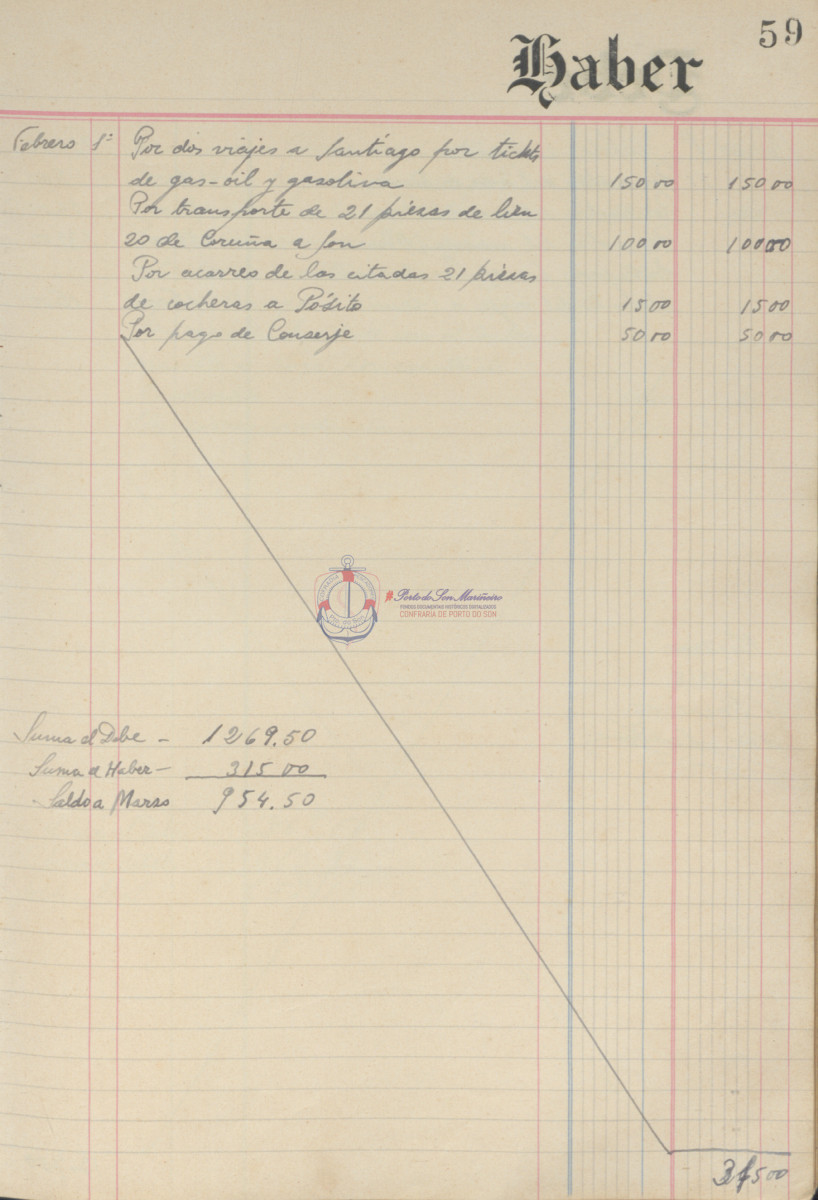 59
Haber
Febrero 1º Por dos viajes a Santiago por tickets
de gas-oil y gasolina 150 00 150 00
Por transporte de 21 piezas de lien
zo de Coruña a Son 100 00 100 00
Por acarreo de las citadas 21 piezas
de cocheras a Pósito 15 00 15 00
Por pago de Conserje 50 00 50 00
Porto do Son Mariñeiro
FONDOS DOCUMENTAIS HISTÓRICOS DIXITALIZADOS
CONFRARIA DE PORTO DO SON
Suma el Debe - 1269.50
Suma el Haber - 315 00
Saldo a Marzo 954.50
315 00